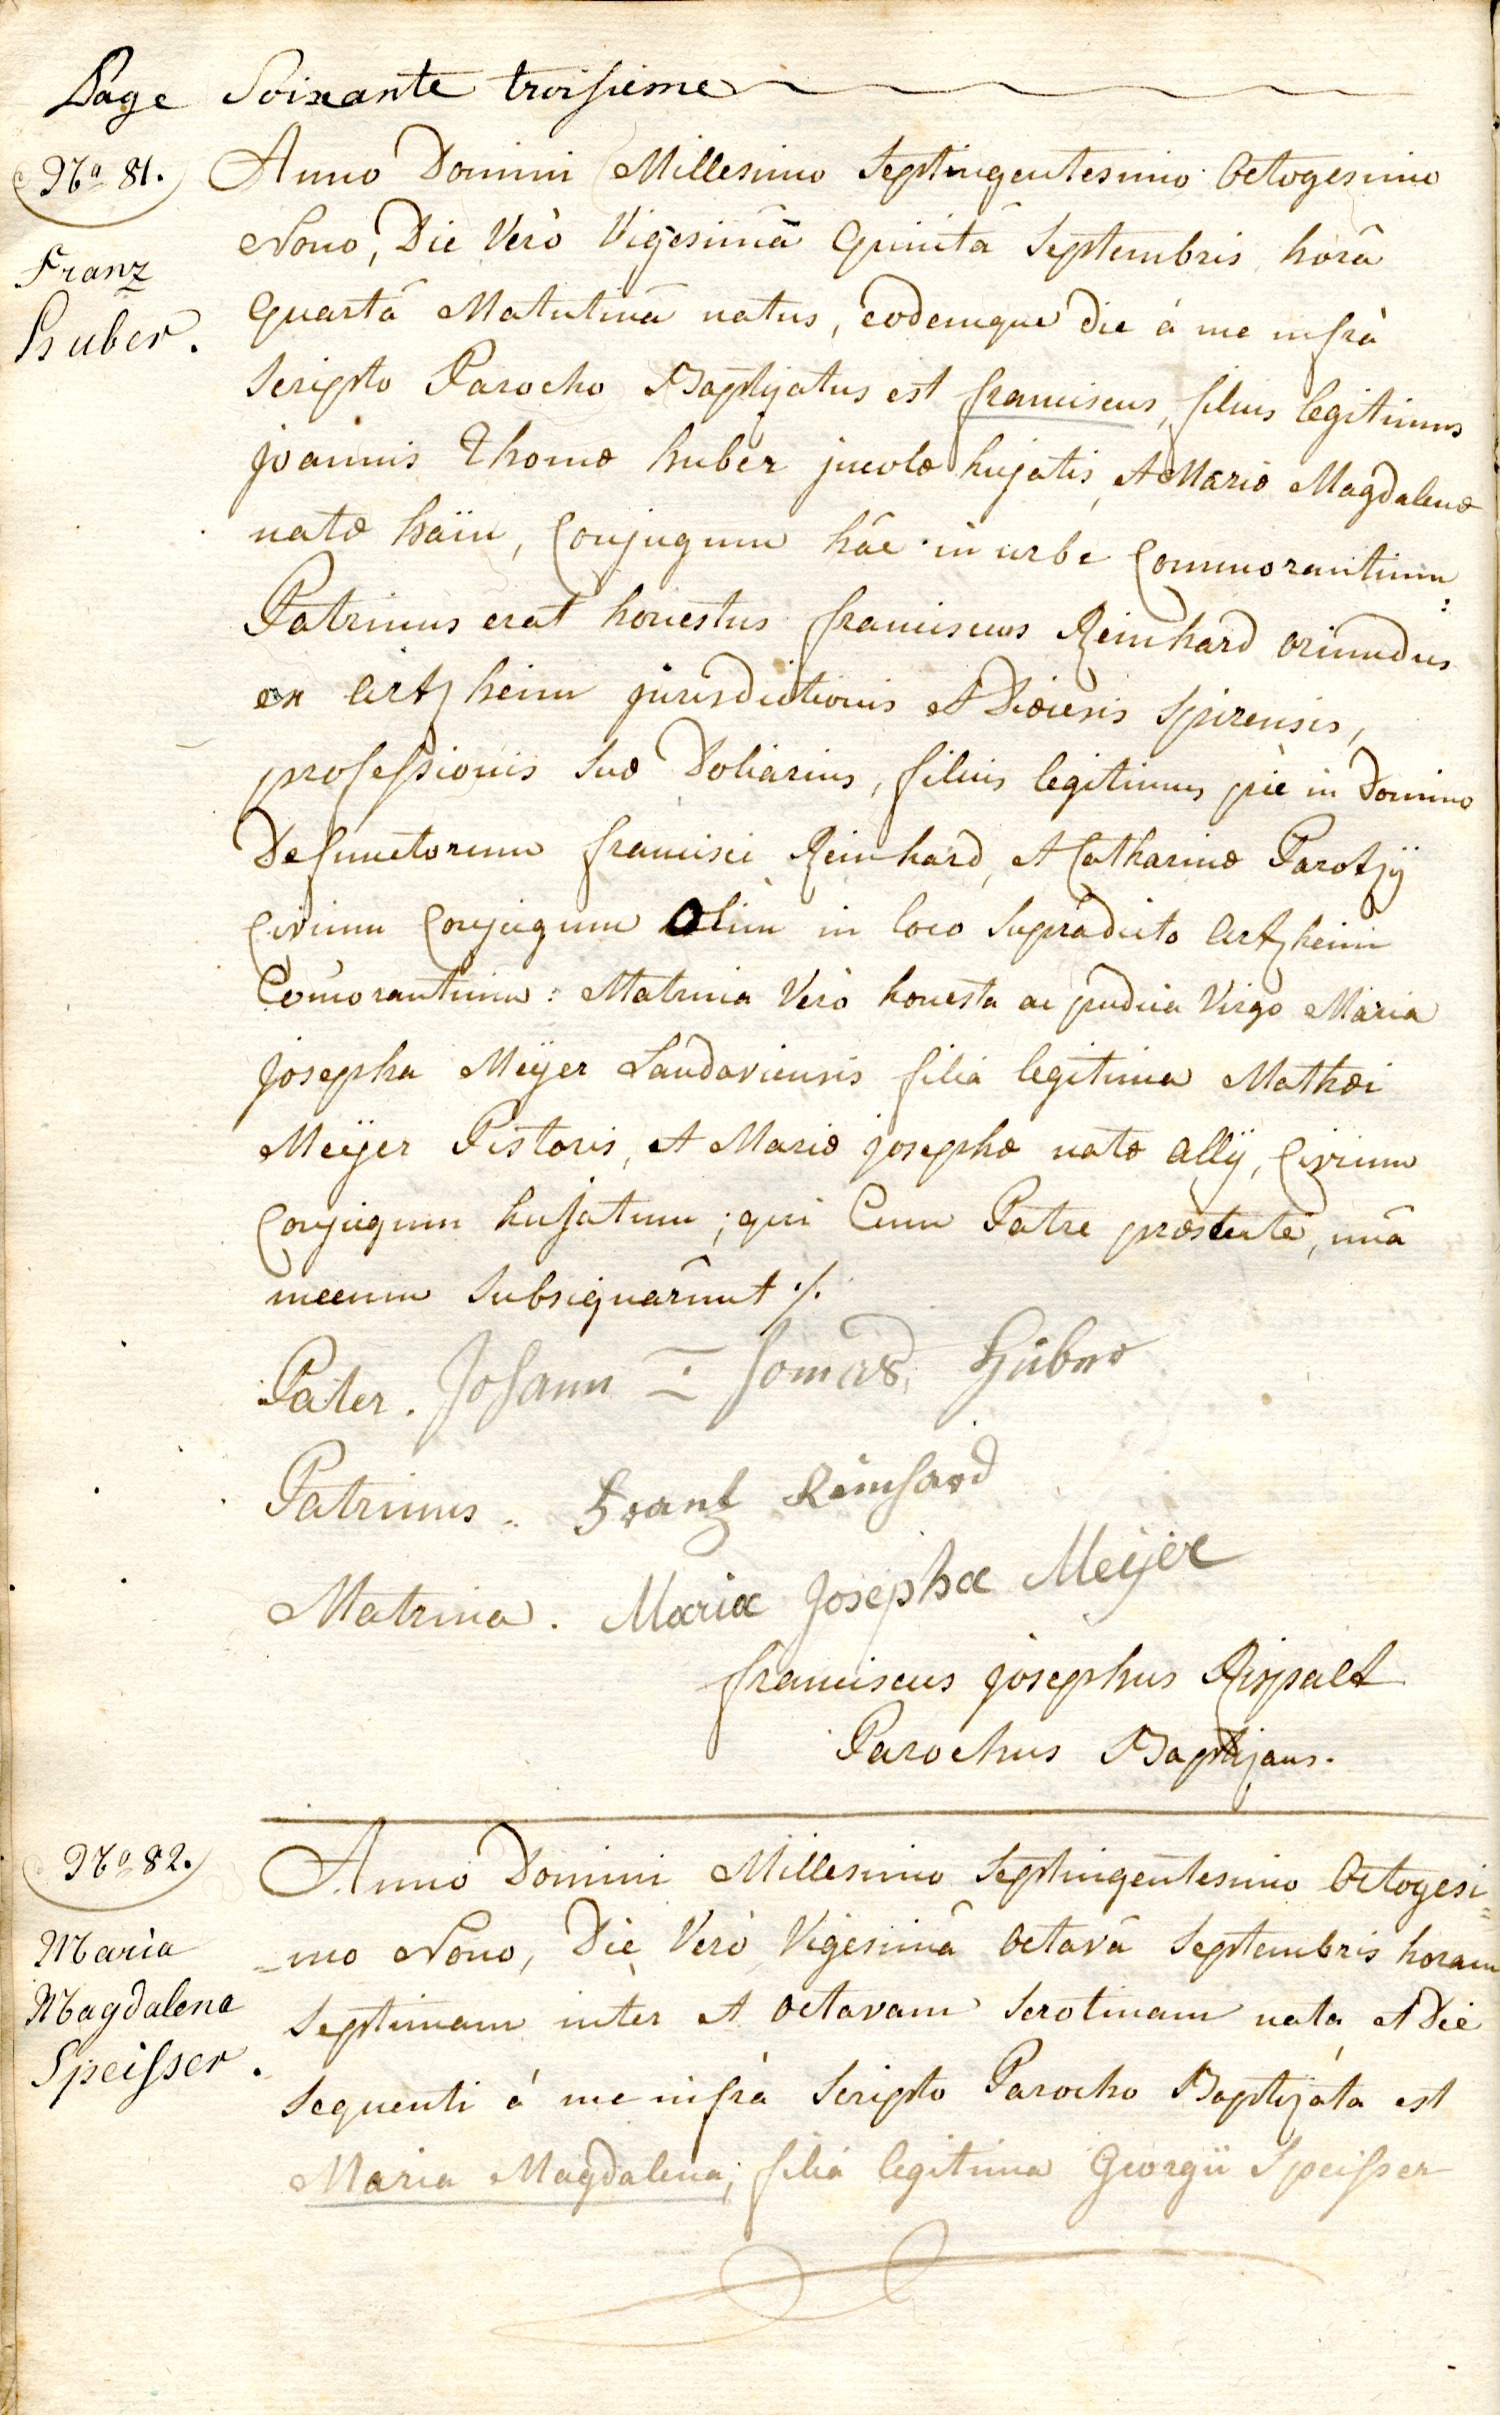 Page Soixante troisieme
No 81.
Franz
Huber.
Anno Domini Millesimo Septingentesimo Octogesimo
Nono, Die Verò Vigesimâ Quintâ Septembris horâ
Quartâ Matutinâ natus, eodemque die à me infrà
Scripto Parocho Baptizatus est franciscus, filius legitimus
joannis Thomæ huber jncolæ hujatis, et Mariæ Magdalenæ
natæ haïn, Conjugum hâc in urbe Commorantium:
Patrinus erat honestus franciscus Reinhard oriundus
ex Artzheim jurisdictionis et Diœcesis Spirensis,
professionis suæ Doliarius, filius legitimus piè in Domino
Defunctorum francisci Reinhard, et Catharinæ Parotzÿ
Civium Conjugum Olim in loco supradicto Artzheim
Comorantium: Matrina Verò honesta ac pudica Virgo Maria
josepha Meÿer Landaviensis filia legitima Mathæi
Meÿer Pistoris, et Mariæ josephæ natæ Allÿ, Civium
Conjugum hujatum; qui Cum Patre præsente, unâ
mecum Subsignârunt ./.
Pater. Johann Thomas Huber
Patrinus. Frantz Reinhard
Matrina. Maria Josepha Meÿer
franciscus josephus Rispalt
Parochus Baptizans.
No 82.
Maria
Magdalena
Speisser.
Anno Domini Millesimo Septingentesimo Octogesi=
=mo Nono, Die Verò Vigesimâ Octavâ Septembris horam
Septimam inter et octavam Serotinam nata et Die
Sequenti à me infrà Scripto Parocho Baptizata est
Maria Magdalena; filia legitima Georgii Speisser